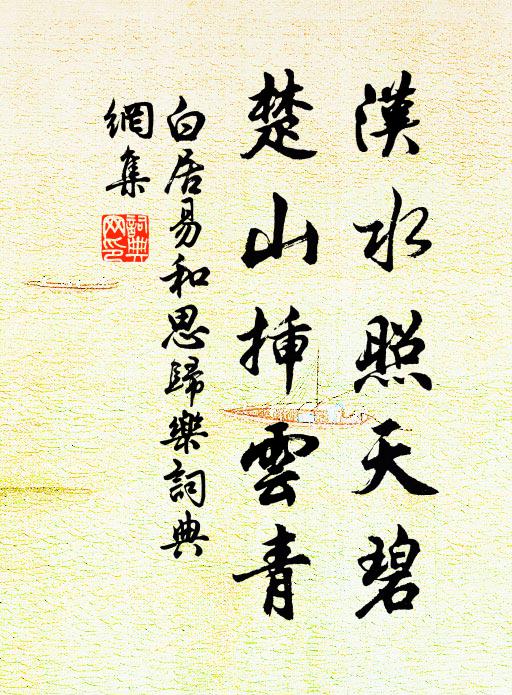 漢水照天碧
楚山插雲青
白居易和思歸樂詞典
網集
詞典
网印